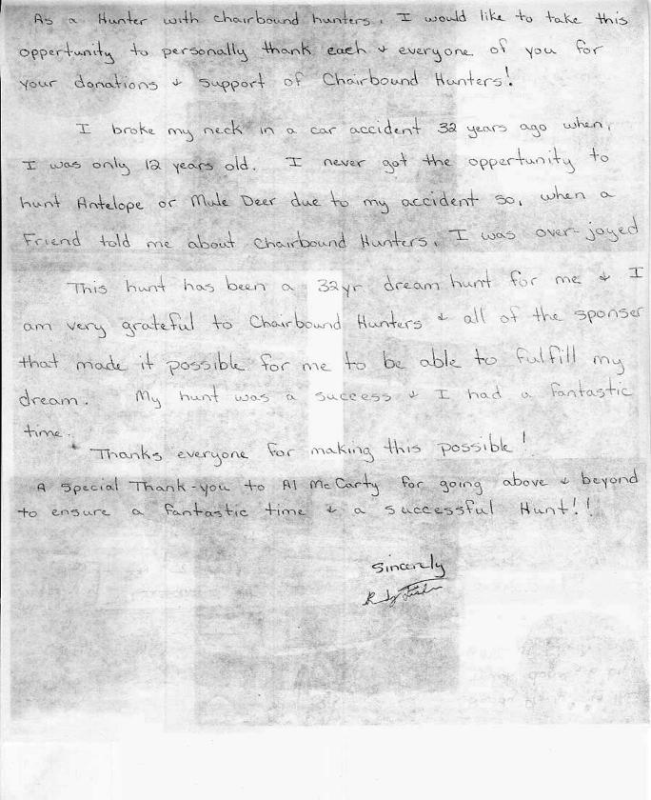 As a Hunter with chairbound hunters, I would like to take this
oppertunity to personally thank each & everyone of you for
your donations & support of Chairbound Hunters!
I broke my neck in a car accident 32 years ago when,
I was only 12 years old. I never got the opportunity to
hunt Antelope or Mule Deer due to my accident so, when a
Friend told me about Chairbound Hunters, I was over-joyed
This hunt has been a 32yr dream hunt for me & I
am very grateful to Chairbound Hunters & all of the sponser
that made it possible for me to be able to fulfill my
dream. My hunt was a success & I had a fantastic
time.
Thanks everyone for making this possible!
A Special Thank-you to Al McCarty for going above & beyond
to ensure a fantastic time & a successful Hunt!!
Sincerly